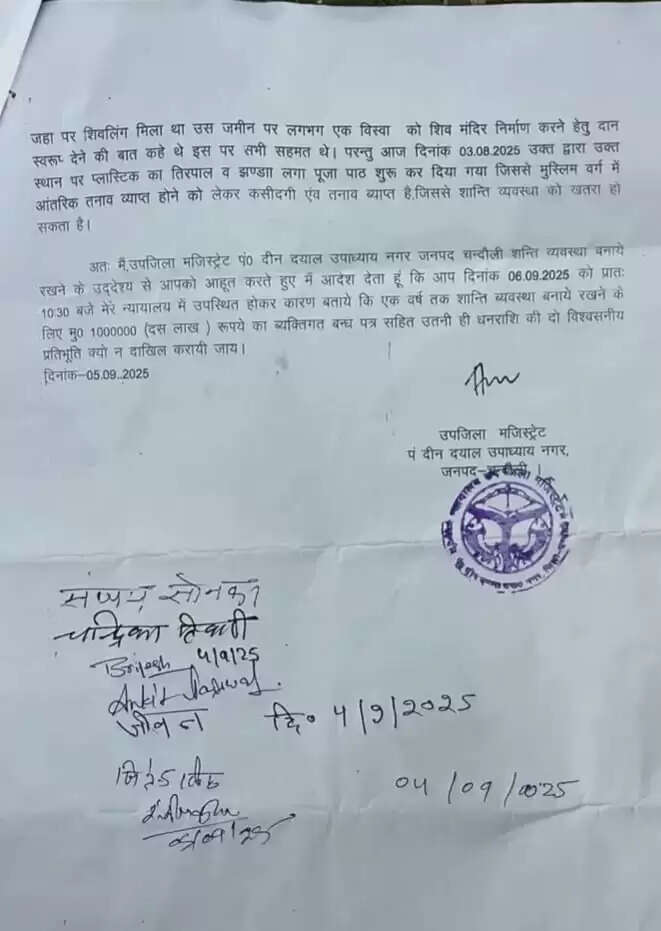 जहा पर शिवलिंग मिला था उस जमीन पर लगभग एक विस्वा को शिव मंदिर निर्माण करने हेतु दान
स्वरूप देने की बात कहे थे इस पर सभी सहमत थे। परन्तु आज दिनांक 03.08.2025 उक्त द्वारा उक्त
स्थान पर प्लास्टिक का तिरपाल व झण्डाा लगा पूजा पाठ शुरू कर दिया गया जिससे मुस्लिम वर्ग में
आंतरिक तनाव व्याप्त होने को लेकर कसीदगी एंव तनाव ब्याप्त है,जिससे शान्ति व्यवस्था को खतरा हो
सकता है।
अतः मैं,उपजिला मजिस्ट्रेट पं0 दीन दयाल उपाध्याय नगर जनपद चन्दौली शन्ति व्यवस्था बनाये
रखने के उद्देश्य से आपको आहूत करते हुए में आदेश देता हूं कि आप दिनांक 06.09.2025 को प्रातः
10:30 बजे मेरे न्यायालय में उपस्थित होकर कारण बताये कि एक वर्ष तक शान्ति ब्यवस्था बनाये रखने के
लिए मु0 1000000 (दस लाख ) रूपये का ब्यक्तिगत बन्ध पत्र सहित उतनी ही धनराशि की दो विश्वसनीय
प्रतिभूति क्यो न दाखिल करायी जाय।
दिनांक-05.09..2025
उपजिला मजिस्ट्रेट
पं दीन दयाल उपाध्याय नगर,
जनपद-चन्दौली ।
संजय सोनकर
चन्द्रिका तिवारी
Brijesh 4/9/25
Ankit Jaiswal
जीवन दि० 4/9/2025
04/09/2025